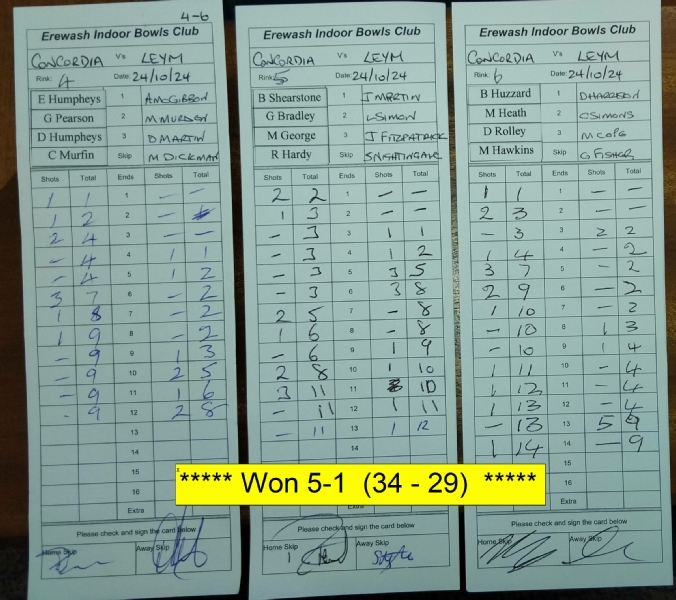 4-6
Erewash Indoor Bowls Club
CONCORDIA V's LEYM
Rink: 4 Date: 24/10/24
E Humpheys 1 A McGIBBON
G Pearson 2 M MURDEN
D Humpheys 3 D MARTIN
C Murfin Skip M DICKMAN
Shots Total Ends Shots Total
1 1 1 - -
1 2 2 -
2 4 3 - -
- 4 4 1 1
- 4 5 1 2
3 7 6 - 2
1 8 7 - 2
1 9 8 - 2
- 9 9 1 3
- 9 10 2 5
- 9 11 1 6
- 9 12 2 8
13
14
15
16
Extra
Please check and sign the card below
Home Skip Away Skip
Erewash Indoor Bowls Club
CONCORDIA V's LEYM
Rink: 5 Date: 24/10/24
B Shearstone 1 J MARTIN
G Bradley 2 L SIMON
M George 3 J FITZPATRICK
R Hardy Skip S NIGHTINGALE
Shots Total Ends Shots Total
2 2 1 - -
1 3 2 - -
- 3 3 1 1
- 3 4 1 2
- 3 5 3 5
- 3 6 3 8
2 5 7 - 8
1 6 8 - 8
- 6 9 1 9
2 8 10 1 10
3 11 11 10
- 11 12 1 11
- 11 13 1 12
14
Please check and sign the card below
Home Skip Away Skip
Erewash Indoor Bowls Club
CONCORDIA V's LEYM
Rink: 6 Date: 24/10/24
B Huzzard 1 D HARRISON
M Heath 2 C SIMONS
D Rolley 3 M COPE
M Hawkins Skip G FISHER
Shots Total Ends Shots Total
1 1 1 - -
2 3 2 - -
- 3 3 2 2
1 4 4 - 2
3 7 5 - 2
2 9 6 - 2
1 10 7 - 2
- 10 8 1 3
- 10 9 1 4
1 11 10 - 4
1 12 11 - 4
1 13 12 - 4
- 13 13 5 9
1 14 14 - 9
15
16
Extra
Please check and sign the card below
Home Skip Away Skip
***** Won 5-1 (34 - 29) *****